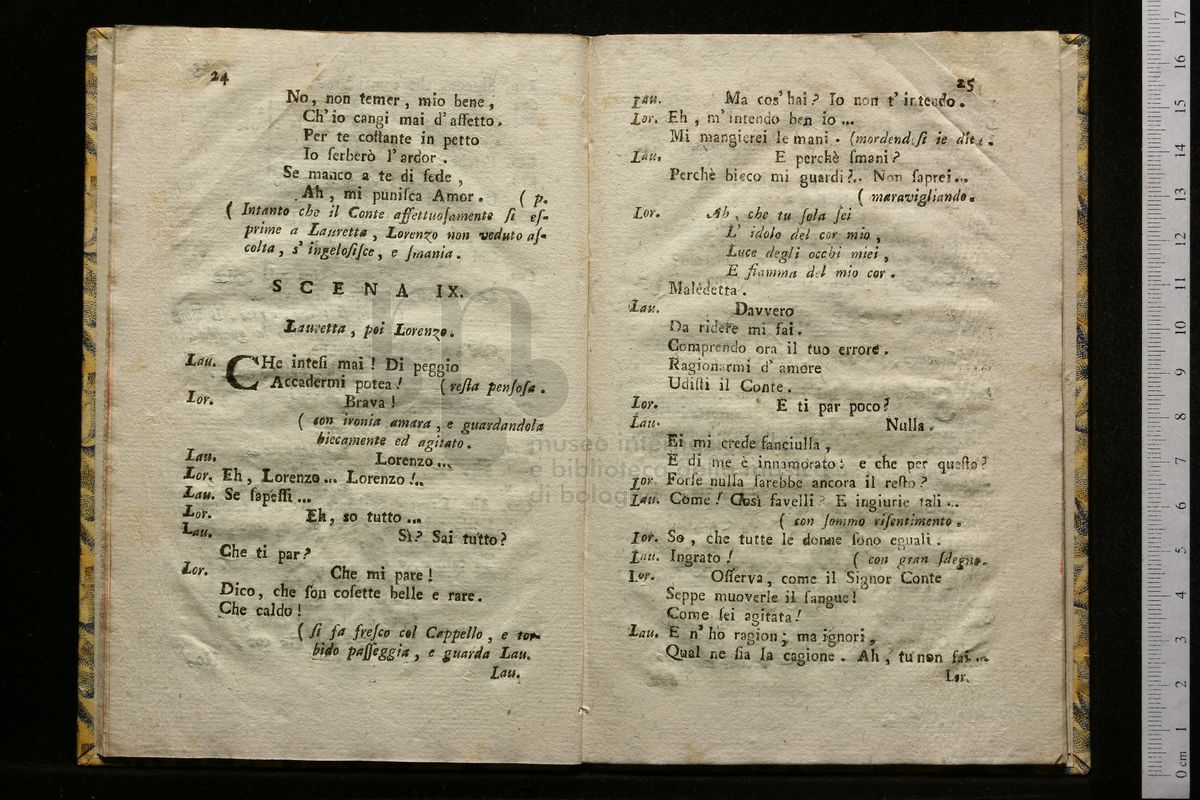 24
No, non temer, mio bene,
Ch'io cangi mai d'affetto.
Per te costante in petto
Io serberò l'ardor.
Se manco a te di fede,
Ah, mi punisca Amor. ( p.
( Intanto che il Conte affettuosamente si es-
prime a Lauretta, Lorenzo non veduto as-
colta, s'ingelosisce, e smania.
SCENA IX.
Lauretta, poi Lorenzo.
Lau. CHe intesi mai! Di peggio
Accadermi potea! ( resta pensosa.
Lor. Brava!
( con ironia amara, e guardandola
biecamente ed agitato.
Lau. Lorenzo...
Lor. Eh, Lorenzo... Lorenzo!..
Lau. Se sapessi...
Lor. Eh, so tutto...
Lau. Sì? Sai tutto?
Che ti par?
Lor. Che mi pare!
Dico, che son cosette belle e rare.
Che caldo!
( si fa fresco col Cappello, e tor-
bido passeggia, e guarda Lau.
Lau.
25
Lau. Ma cos'hai? Io non t'intendo.
Lor. Eh, m'intendo ben io...
Mi mangierei le mani. (mordendosi le dita.
Lau. E perchè smani?
Perchè bieco mi guardi?.. Non saprei...
( maravigliando.
Lor. Ah, che tu sola sei
L'idolo del cor mio,
Luce degli occhi miei,
E fiamma del mio cor.
Maledetta.
Lau. Davvero
Da ridere mi fai.
Comprendo ora il tuo errore.
Ragionarmi d'amore
Udisti il Conte.
Lor. E ti par poco?
Lau. Nulla.
Ei mi crede fanciulla,
E di me è innamorato: e che per questo?
Lor. Forse nulla sarebbe ancora il resto?
Lau. Come! Così favelli? E ingiurie tali...
( con sommo risentimento.
Lor. So, che tutte le donne sono eguali.
Lau. Ingrato! ( con gran sdegno.
Lor. Osserva, come il Signor Conte
Seppe muoverle il sangue!
Come sei agitata!
Lau. E n'ho ragion; ma ignori,
Qual ne sia la cagione. Ah, tu non sai...
Lor.
museo inter
e biblioteca
di bolog
0 cm 1 2 3 4 5 6 7 8 9 10 11 12 13 14 15 16 17